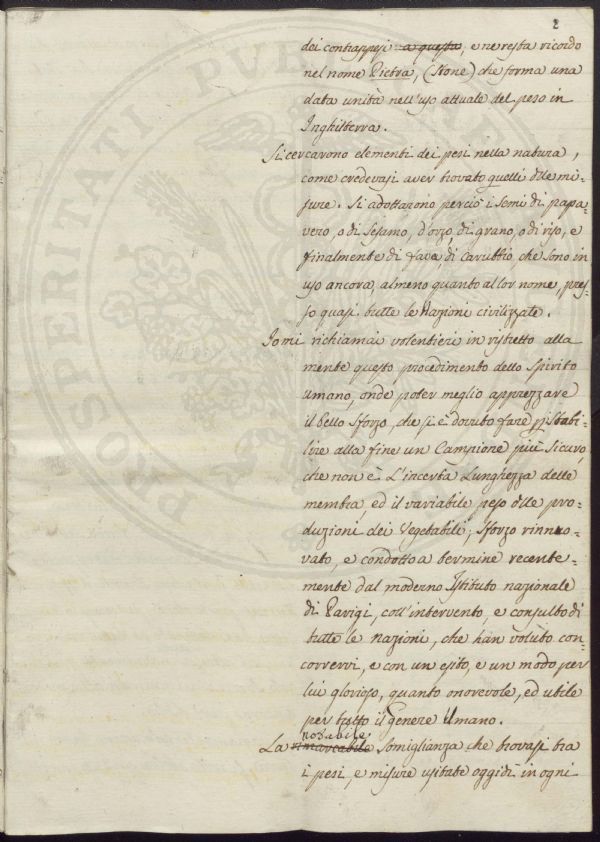 2
dei contrappesi a questo, e ne resta ricordo
nel nome Pietra, (Stone) che forma una
data unità nell'uso attuale del peso in
Inghilterra.
Si cercarono elementi dei pesi nella natura,
come credevasi aver trovato quelli delle mi=
sure. Si adottarono perciò i semi di papa=
vero, o di Sesamo, d'orzo, di grano, o di riso, e
finalmente di fava, di Carubbio, che sono in
uso ancora, almeno quanto al lor nome, pres=
so quasi tutte le Nazioni civilizzate.
Io mi richiamai volentieri in ristretto alla
mente questo procedimento dello Spirito
umano, onde poter meglio apprezzare
il bello Sforzo, che si è dovuto fare per istabi=
lire alla fine un Campione più Sicuro,
che non è L'incerta Lunghezza delle
membra, ed il variabile peso delle pro=
duzioni dei Vegetabili; Sforzo rinno=
vato, e condotto a termine recente=
mente dal moderno Istituto nazionale
di Parigi, coll'intervento, e consulto di
tutte le nazioni, che han voluto con=
corrervi, e con un esito, e un modo per
lui glorioso, quanto onorevole, ed utile
per tutto il Genere Umano.
notabile
La rimarcabile Somiglianza che trovasi tra
i pesi, e misure usitate oggidì in ogni
PROSPERITATI PUBLICAE